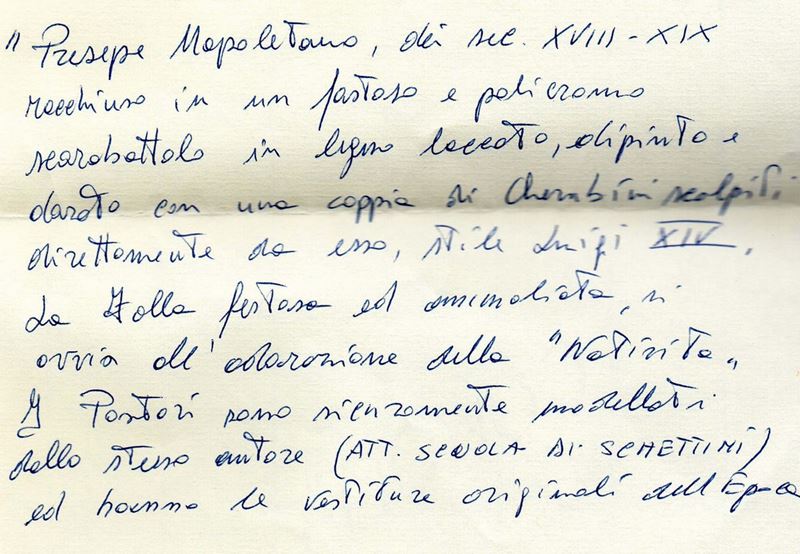 " Presepe Napoletano, dei sec. XVIII - XIX
racchiuso in un fastoso e policromo
scarabattolo in legno laccato, dipinto e
dorato con una coppia di Cherubini scolpiti
direttamente da esso, stile Luigi XIV.
La Folla festosa ed ammaliata, si
avvia all'adorazione della "Natività"
I Pastori sono sicuramente modellati
dallo stesso autore (ATT. SCUOLA DI SCHETTINI)
ed hanno le vestiture originali dell'Epoca